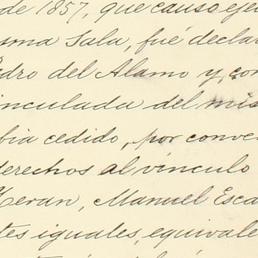 de 1857, que causó eje
sma Sala, fué declar
Pedro del Alamo y, con
inculada del mis
bia cedido, por conve
derechos al vínculo
Teran, Manuel Esca
tes iguales, equivale